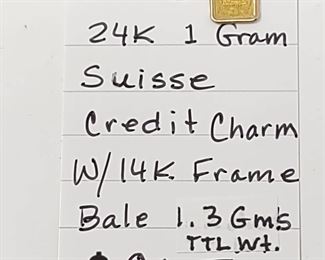 24K 1 Gram
Suisse
Credit Charm
W/14K Frame
Bale 1.3 Gms
TTL Wt.